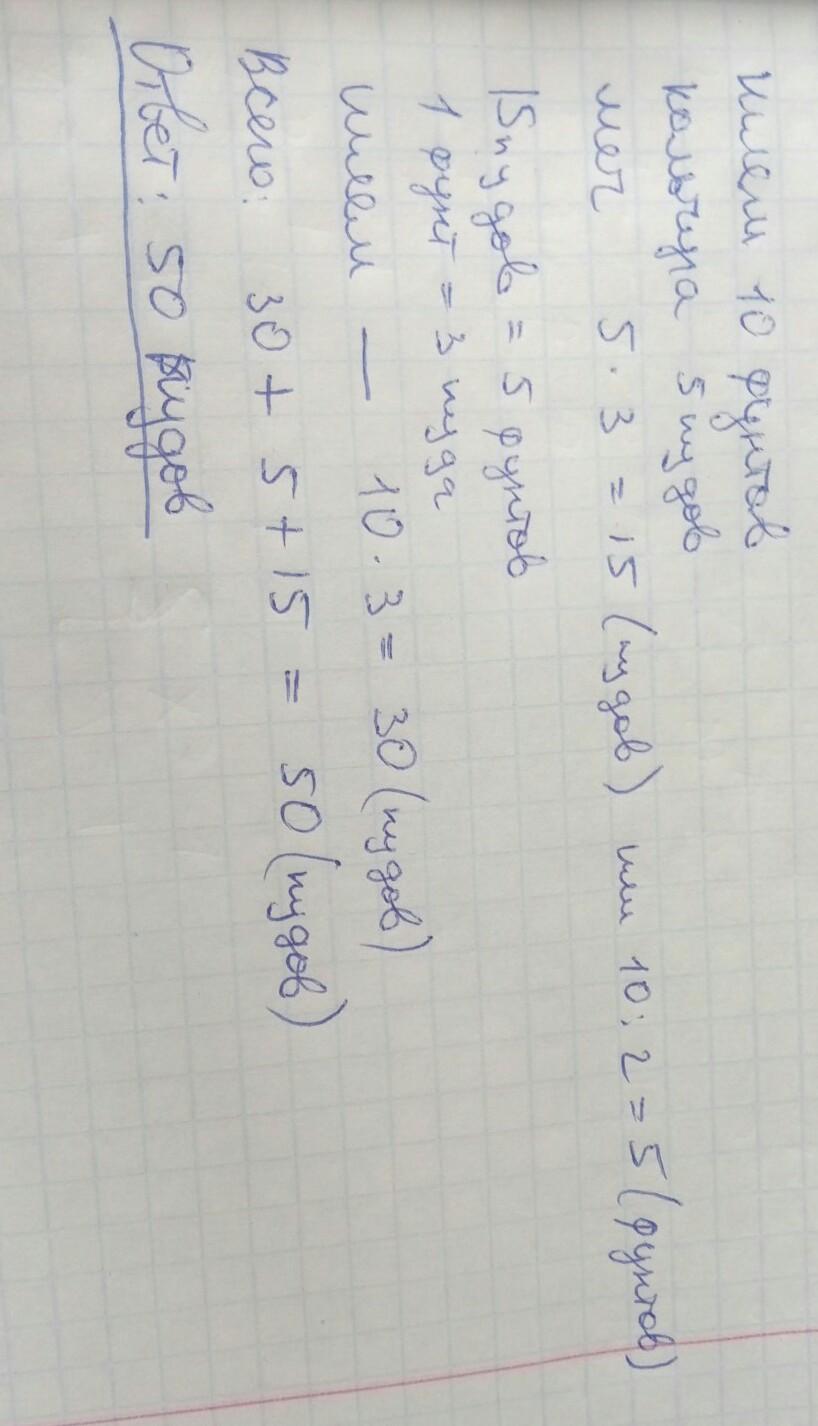 Шлем 10 фунтов
кольчуга 5 пудов
меч 5 · 3 = 15 (пудов) или 10 : 2 = 5 (фунтов)
15 пудов = 5 фунтов
1 фунт = 3 пуда
Шлем — 10 · 3 = 30 (пудов)
Всего: 30 + 5 + 15 = 50 (пудов)
Ответ: 50 пудов